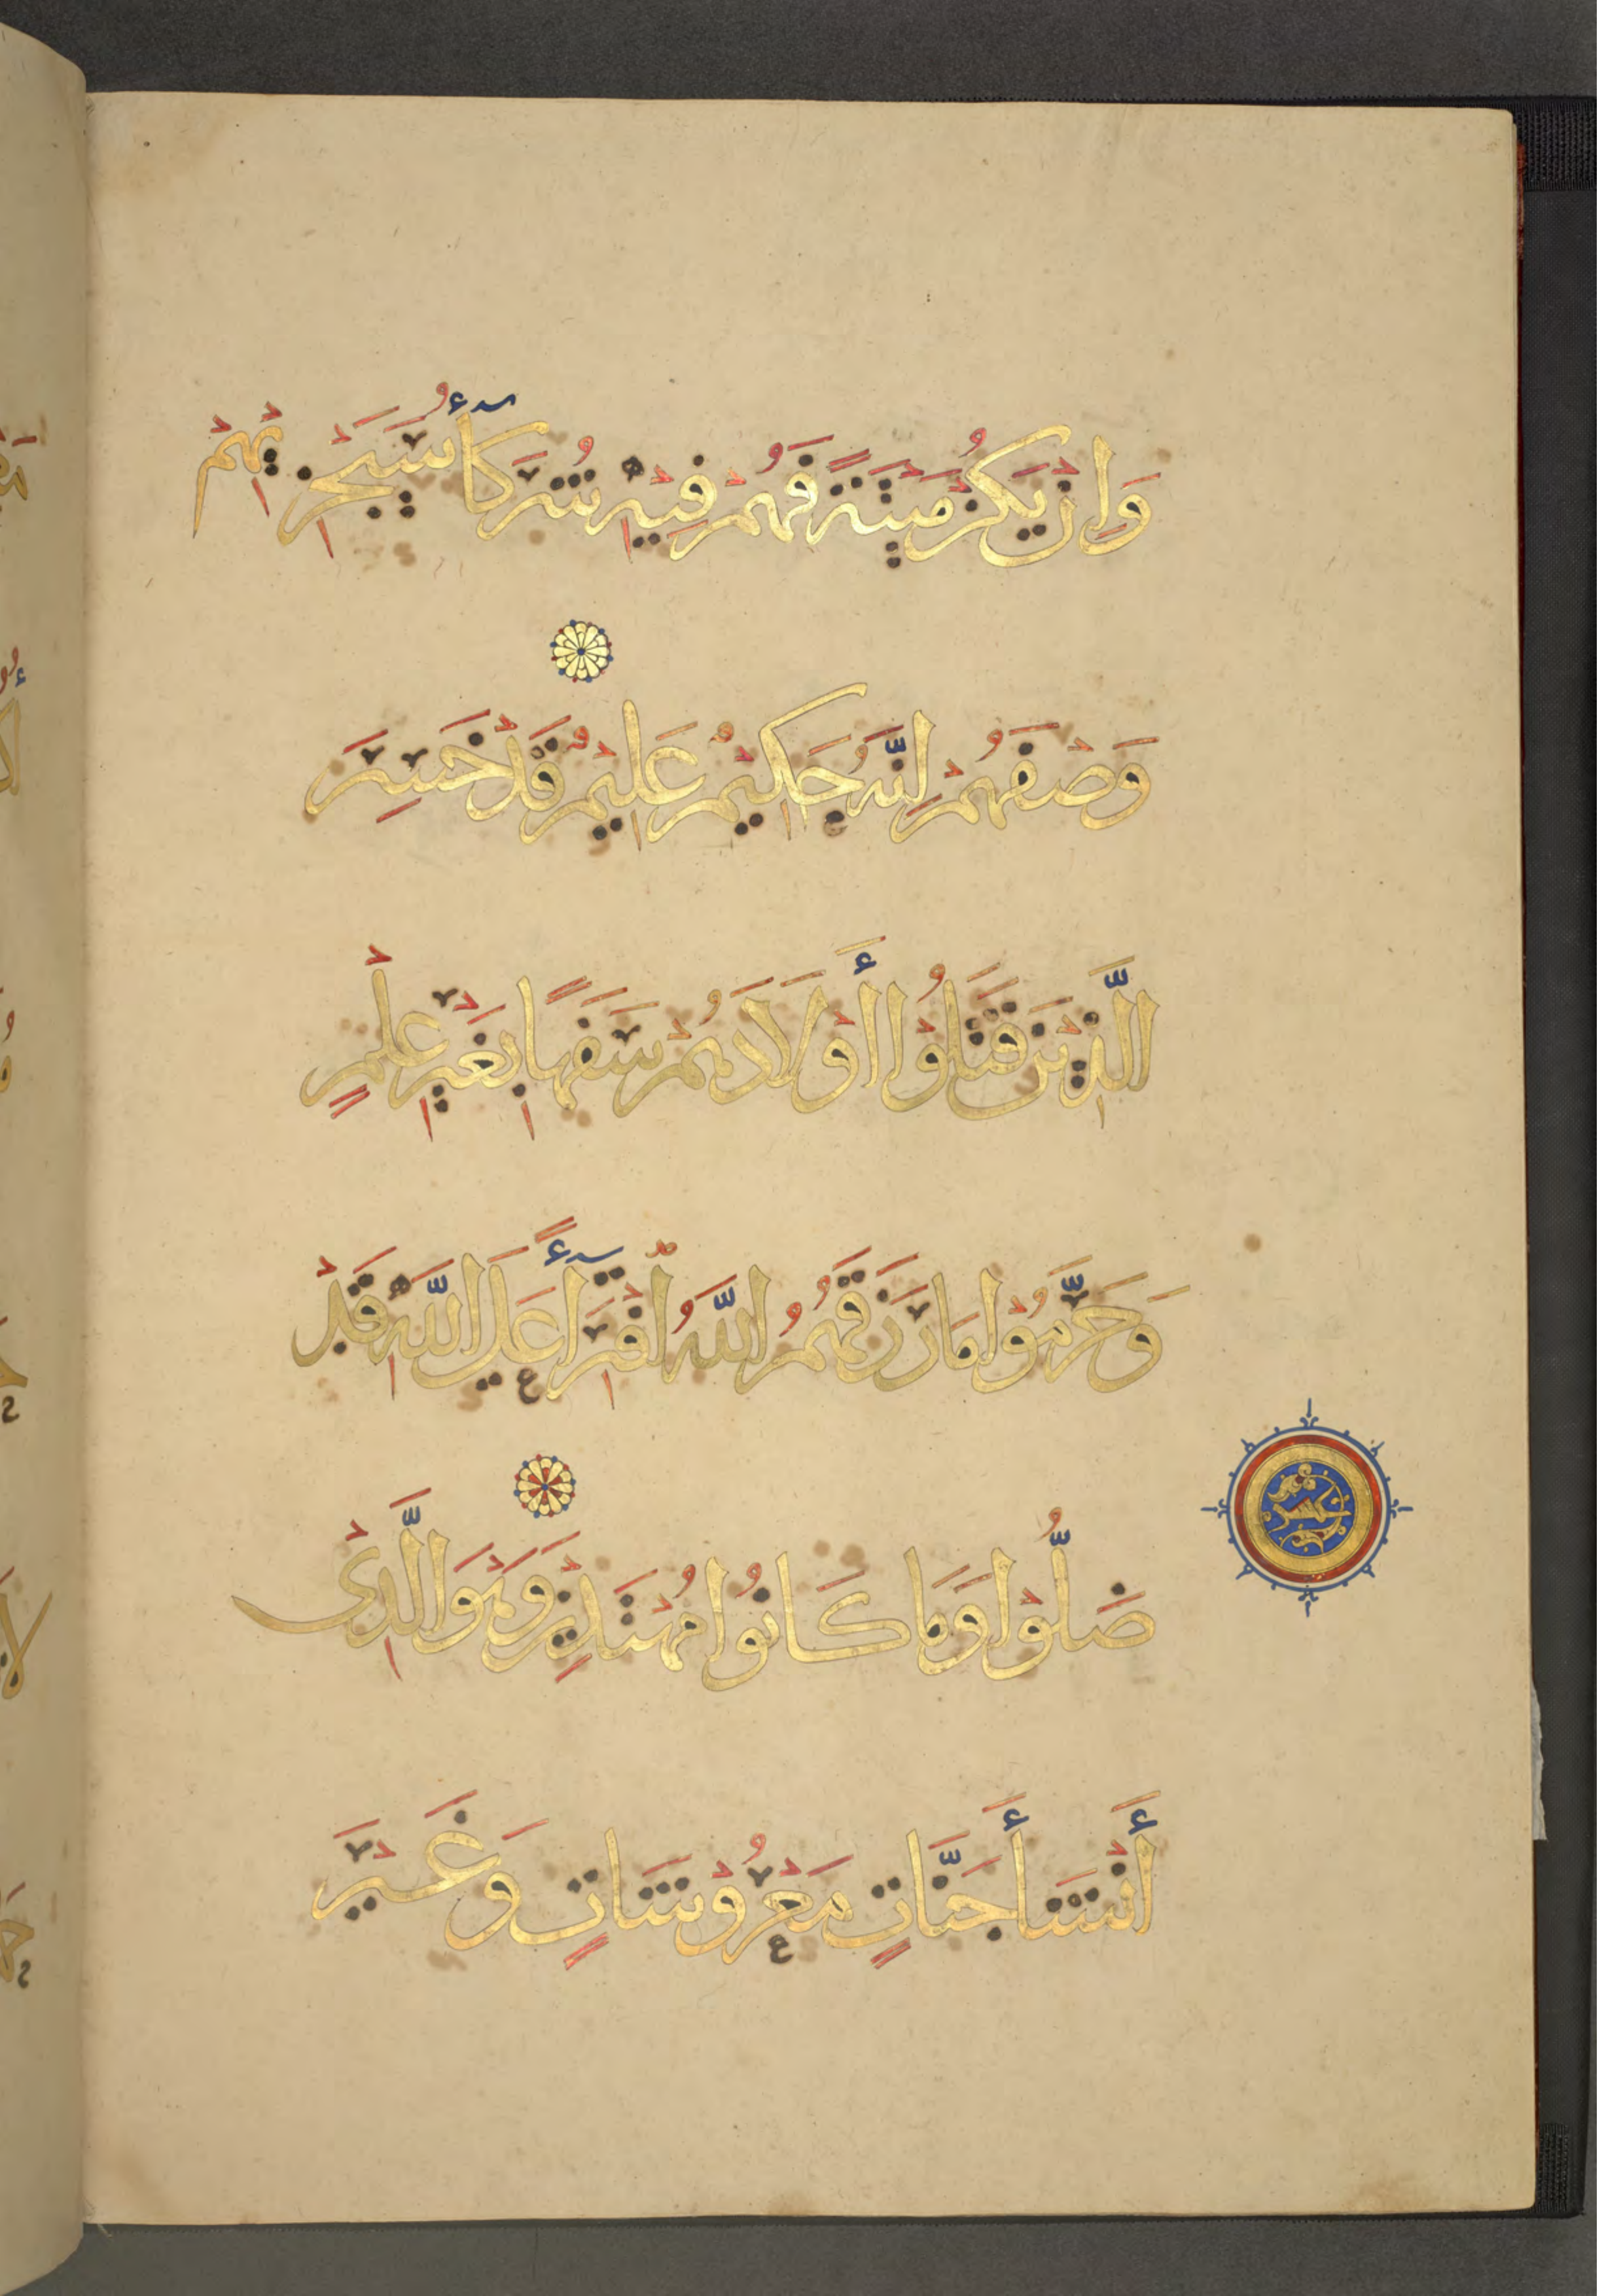 وَإِنْ يَكُنْ مَيْتَةً فَهُمْ فِيْهِ شُرَكَآءُ سَيَجْزِيْهِمْ
وَصْفَهُمْ إِنَّهُ حَكِيْمٌ عَلِيْمٌ قَدْ خَسِرَ
الَّذِيْنَ قَتَلُوْا أَوْلَادَهُمْ سَفَهًا بِغَيْرِ عِلْمٍ
وَحَرَّمُوْا مَا رَزَقَهُمُ اللَّهُ افْتِرَآءً عَلَى اللَّهِ قَدْ
ضَلُّوْا وَمَا كَانُوْا مُهْتَدِيْنَ وَهُوَ الَّذِيْ
أَنْشَأَ جَنَّاتٍ مَعْرُوْشَاتٍ وَغَيْرَ